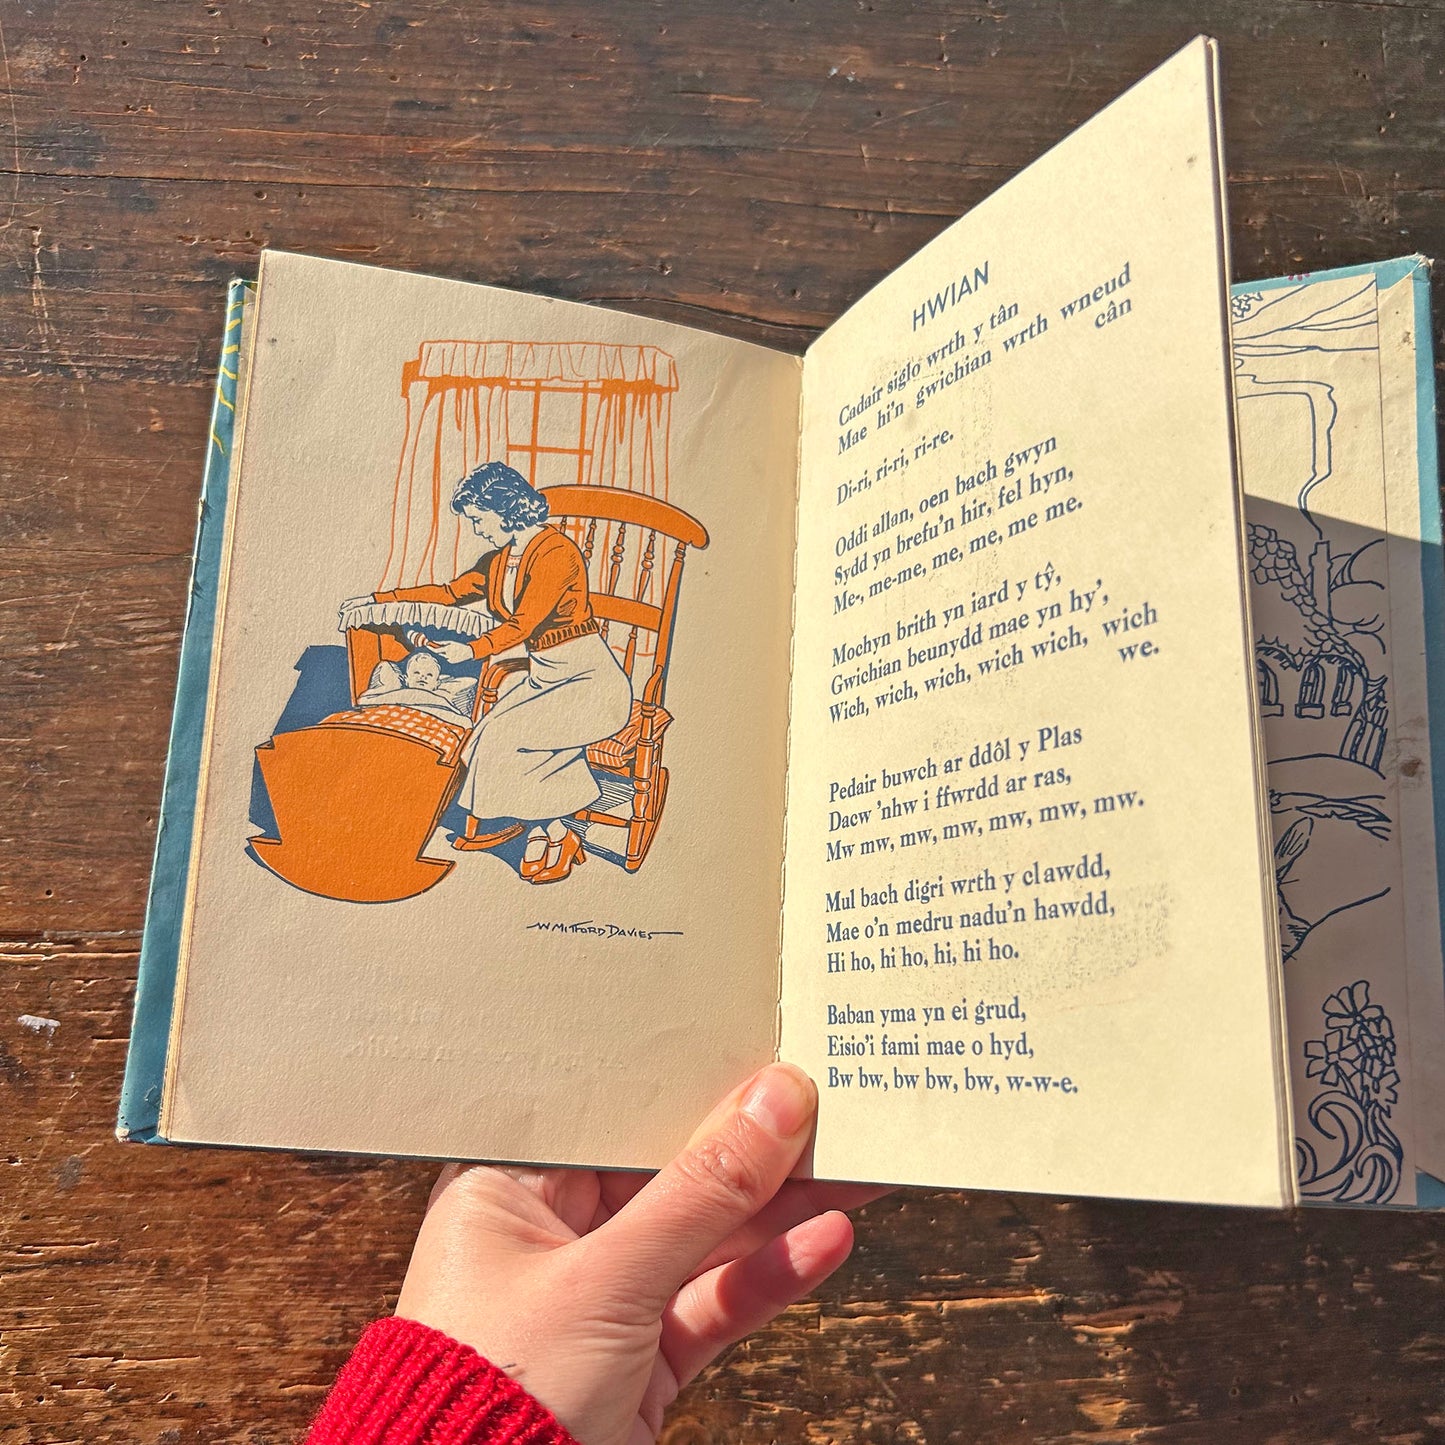 W MITFORD DAVIES
HWIAN
Cadair siglo wrth y tân
Mae hi'n gwichian wrth wneud
cân
Di-ri, ri-ri, ri-re.
Oddi allan, oen bach gwyn
Sydd yn brefu'n hir, fel hyn,
Me-, me-me, me, me, me me.
Mochyn brith yn iard y tŷ,
Gwichian beunydd mae yn hy',
Wich, wich, wich, wich wich, wich
we.
Pedair buwch ar ddôl y Plas
Dacw 'nhw i ffwrdd ar ras,
Mw mw, mw, mw, mw, mw, mw.
Mul bach digri wrth y clawdd,
Mae o'n medru nadu'n hawdd,
Hi ho, hi ho, hi, hi ho.
Baban yma yn ei grud,
Eisio'i fami mae o hyd,
Bw bw, bw bw, bw, w-w-e.